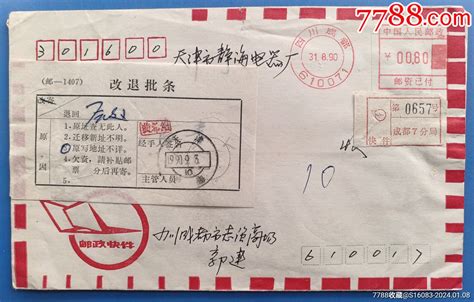 7788.com
中国人民邮政
¥ 00.80
邮资已付
四川成都
31.8.90
610071
301600
天津市静海电器厂
(邮—1407) 改退批条
退回
原因
1.原址查无此人。
2.迁移新址不明。
3.原写地址不详。
4.欠资,请补贴邮票 分后再寄。
5.
经手人
主管人员
1990.9.3
第 0657 号
成都7分局
快件
10
邮政快件
郭建
610017
7788收藏@S16083-2024.01.08